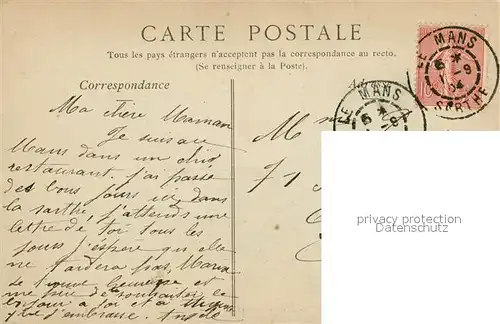 CARTE POSTALE
Tous les pays étrangers n'acceptent pas la correspondance au recto.
(Se renseigner à la Poste).
Correspondance
LE MANS
6 * 1 -9 04
SARTHE
LE MANS
6 *
Ma chère Maman
Je suis au
Mans dans un chiq
restaurant. j'ai passé
des bons jours ici, dans
la sarthe, j'attends une
lettre de toi tous les
jours j'espère qu'elle
ne tardera pas, Maria
se trouve heureuse et
me prie de souhaiter le
bonjour à toi et à
Je t'embrasse. Angèle
M
71
privacy protection
Datenschutz